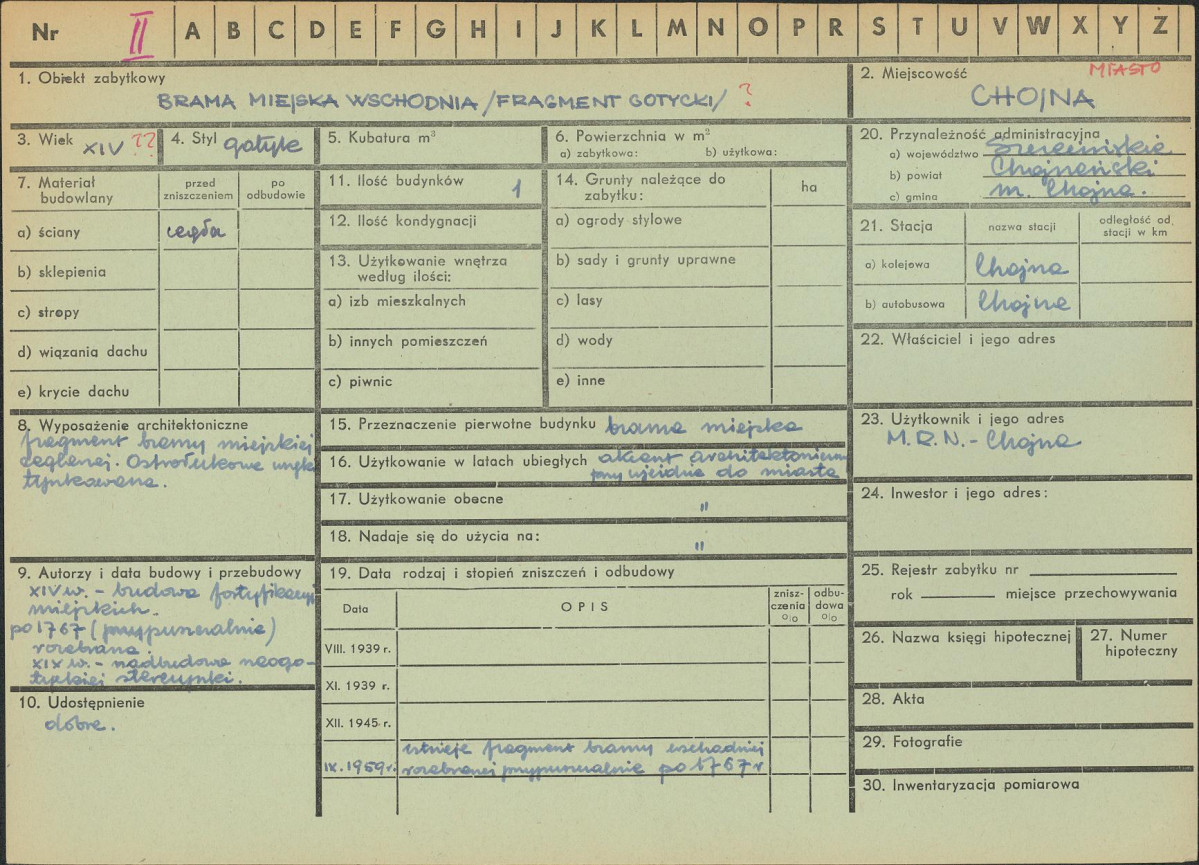 Nr II A B C D E F G H I J K L M N O P R S T U V W X Y Z
1. Obiekt zabytkowy
BRAMA MIEJSKA WSCHODNIA /FRAGMENT GOTYCKI/ ?
2. Miejscowość MIASTO
CHOJNA
3. Wiek XIV ??
4. Styl gotyk
5. Kubatura m³
6. Powierzchnia w m²
a) zabytkowa: b) użytkowa:
20. Przynależność administracyjna
a) województwo Szczecińskie
b) powiat Chojneński
c) gmina m. Chojna.
7. Materiał budowlany
przed zniszczeniem
po odbudowie
a) ściany cegła
b) sklepienia
c) stropy
d) wiązania dachu
e) krycie dachu
11. Ilość budynków 1
12. Ilość kondygnacji
13. Użytkowanie wnętrza
według ilości:
a) izb mieszkalnych
b) innych pomieszczeń
c) piwnic
14. Grunty należące do
zabytku:
ha
a) ogrody stylowe
b) sady i grunty uprawne
c) lasy
d) wody
e) inne
21. Stacja
nazwa stacji
odległość od
stacji w km
a) kolejowa Chojna
b) autobusowa Chojna
22. Właściciel i jego adres
8. Wyposażenie architektoniczne
fragment bramy miejskiej
ceglanej. Ostrołukowe
tynkowana.
15. Przeznaczenie pierwotne budynku brama miejska
16. Użytkowanie w latach ubiegłych akcent architektoniczny
przy wjeździe do miasta
17. Użytkowanie obecne "
18. Nadaje się do użycia na: "
23. Użytkownik i jego adres
M.R.N. - Chojna
24. Inwestor i jego adres:
9. Autorzy i data budowy i przebudowy
XIV w. - budowa fortyfikacji
miejskich.
po 1767 (przypuszczalnie)
rozebrana.
XIX w. - nadbudowa neogo-
tyckiej sterczynki.
10. Udostępnienie
dobre.
19. Data rodzaj i stopień zniszczeń i odbudowy
Data
OPIS
znisz-
czenia
o|o
odbu-
dowa
o|o
VIII. 1939 r.
XI. 1939 r.
XII. 1945 r.
IX. 1959 r.
istnieje fragment bramy wschodniej
rozebranej przypuszczalnie po 1767 r
25. Rejestr zabytku nr
rok miejsce przechowywania
26. Nazwa księgi hipotecznej
27. Numer
hipoteczny
28. Akta
29. Fotografie
30. Inwentaryzacja pomiarowa